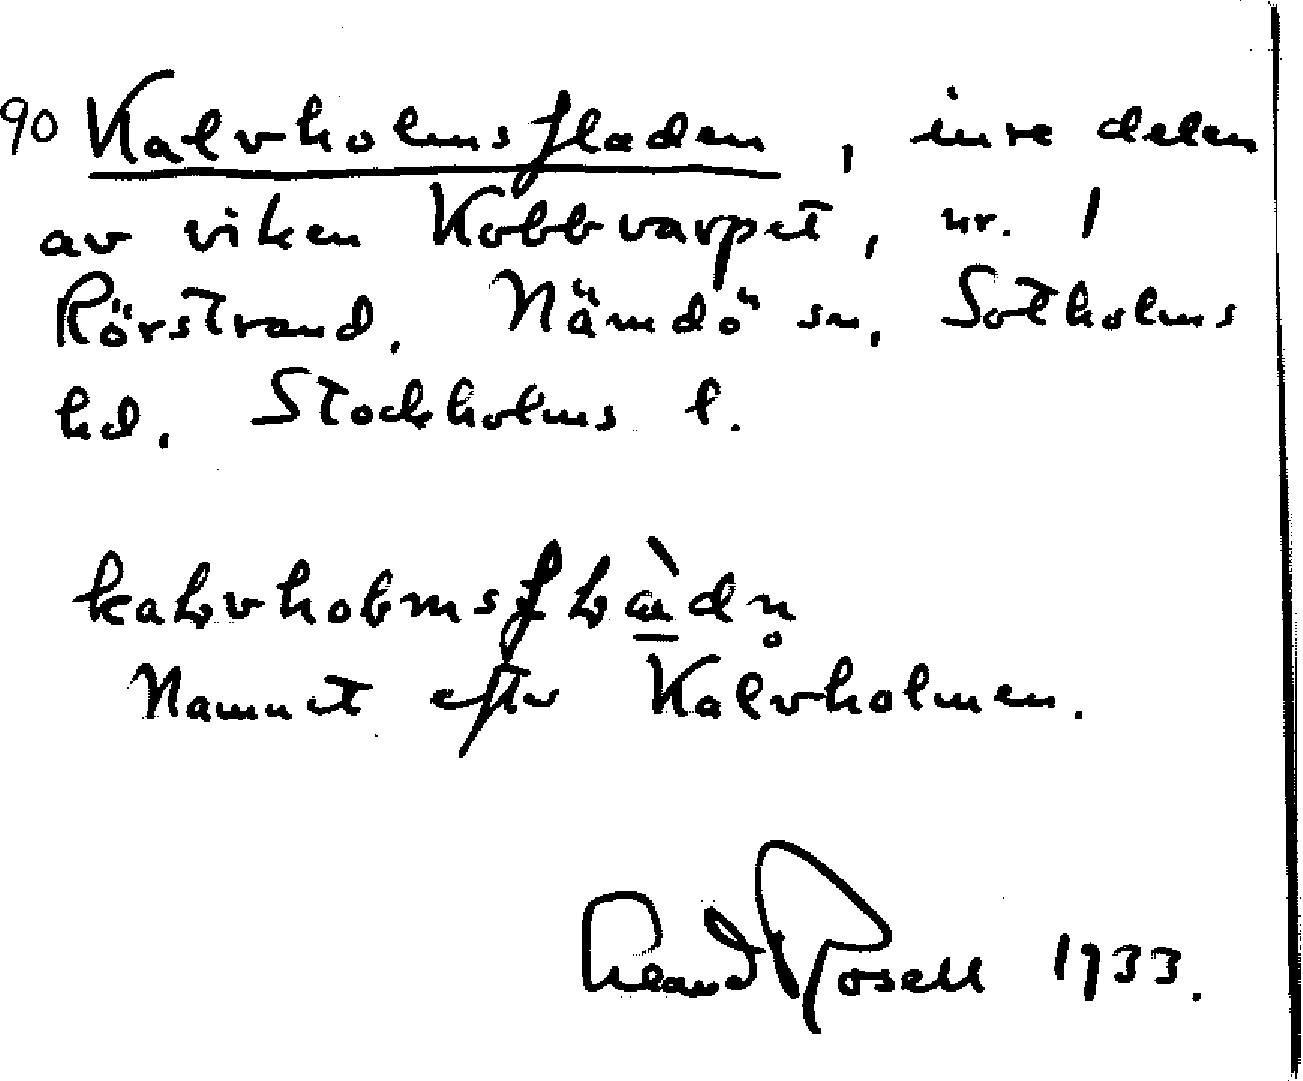 90 Kalvholmsfladen, inre delen
av viken Kobbvarpet, nr. 1
Rörstrand. Nämdö sn, Sotholms
hd. Stockholms l.
Namnet efter Kalvholmen.
Rosell 1933.